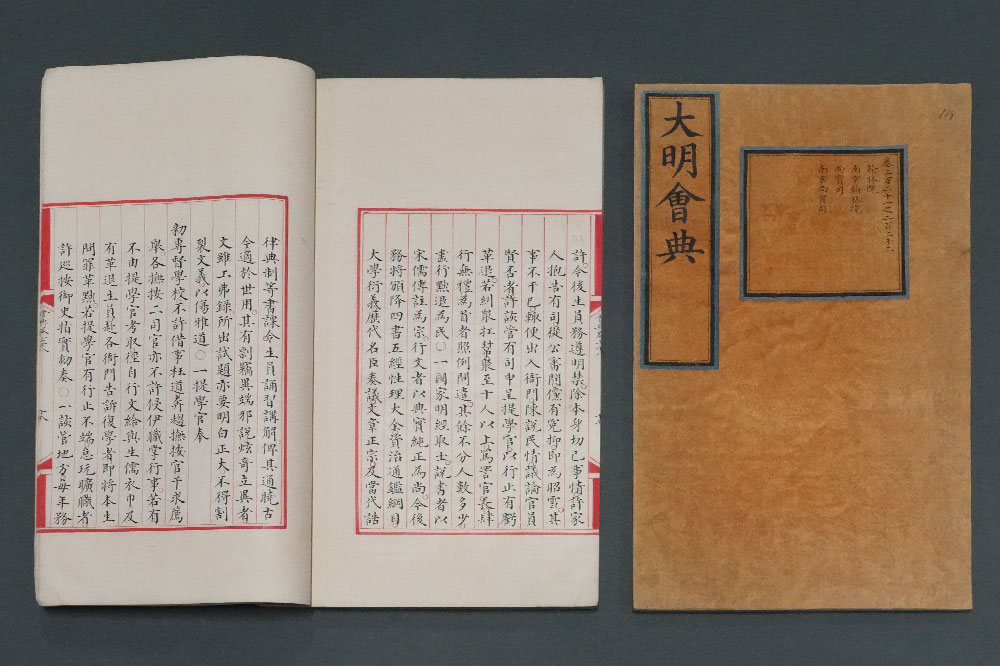 許令後生員務遵明禁除本身切己事情許家
人抱告有司從公審問儻有冤抑即為昭雪其
事不干已輒便出入衙門陳說民情議論官員
賢否者許該管有司申呈提學官以行止有虧
革退若糾眾扛幫聚至十人以上罵詈官長肆
行無禮為首者照例問遣其餘不分人數多少
盡行黜退為民○一國家明經取士說書者以
宋儒傳註為宗行文者以典實純正為尚今後
務將頒降四書五經性理大全資治通鑑綱目
大學衍義歷代名臣奏議文章正宗及當代誥
律典制等書課令生員誦習講解俾其通曉古
今適於世用其有剽竊異端邪說炫奇立異者
文雖工弗錄所出試題亦要明白正大不得割
裂文義以傷雅道○一提學官奉
勑專督學校不許借事枉道奔趨撫按官干求薦
舉各撫按二司官亦不許侵伊職掌行事若有
不由提學官考取徑自行文給與生儒衣巾及
有革退生員赴各衙門告訴復學者即將本生
問罪革黜若提學官有行止不端怠玩曠職者
許巡按御史指實劾奏○一該管地方每年務
大明會典
卷二百二十一之二百二十三
翰林院
南京翰林院
尚寶司
南京尚寶司
119